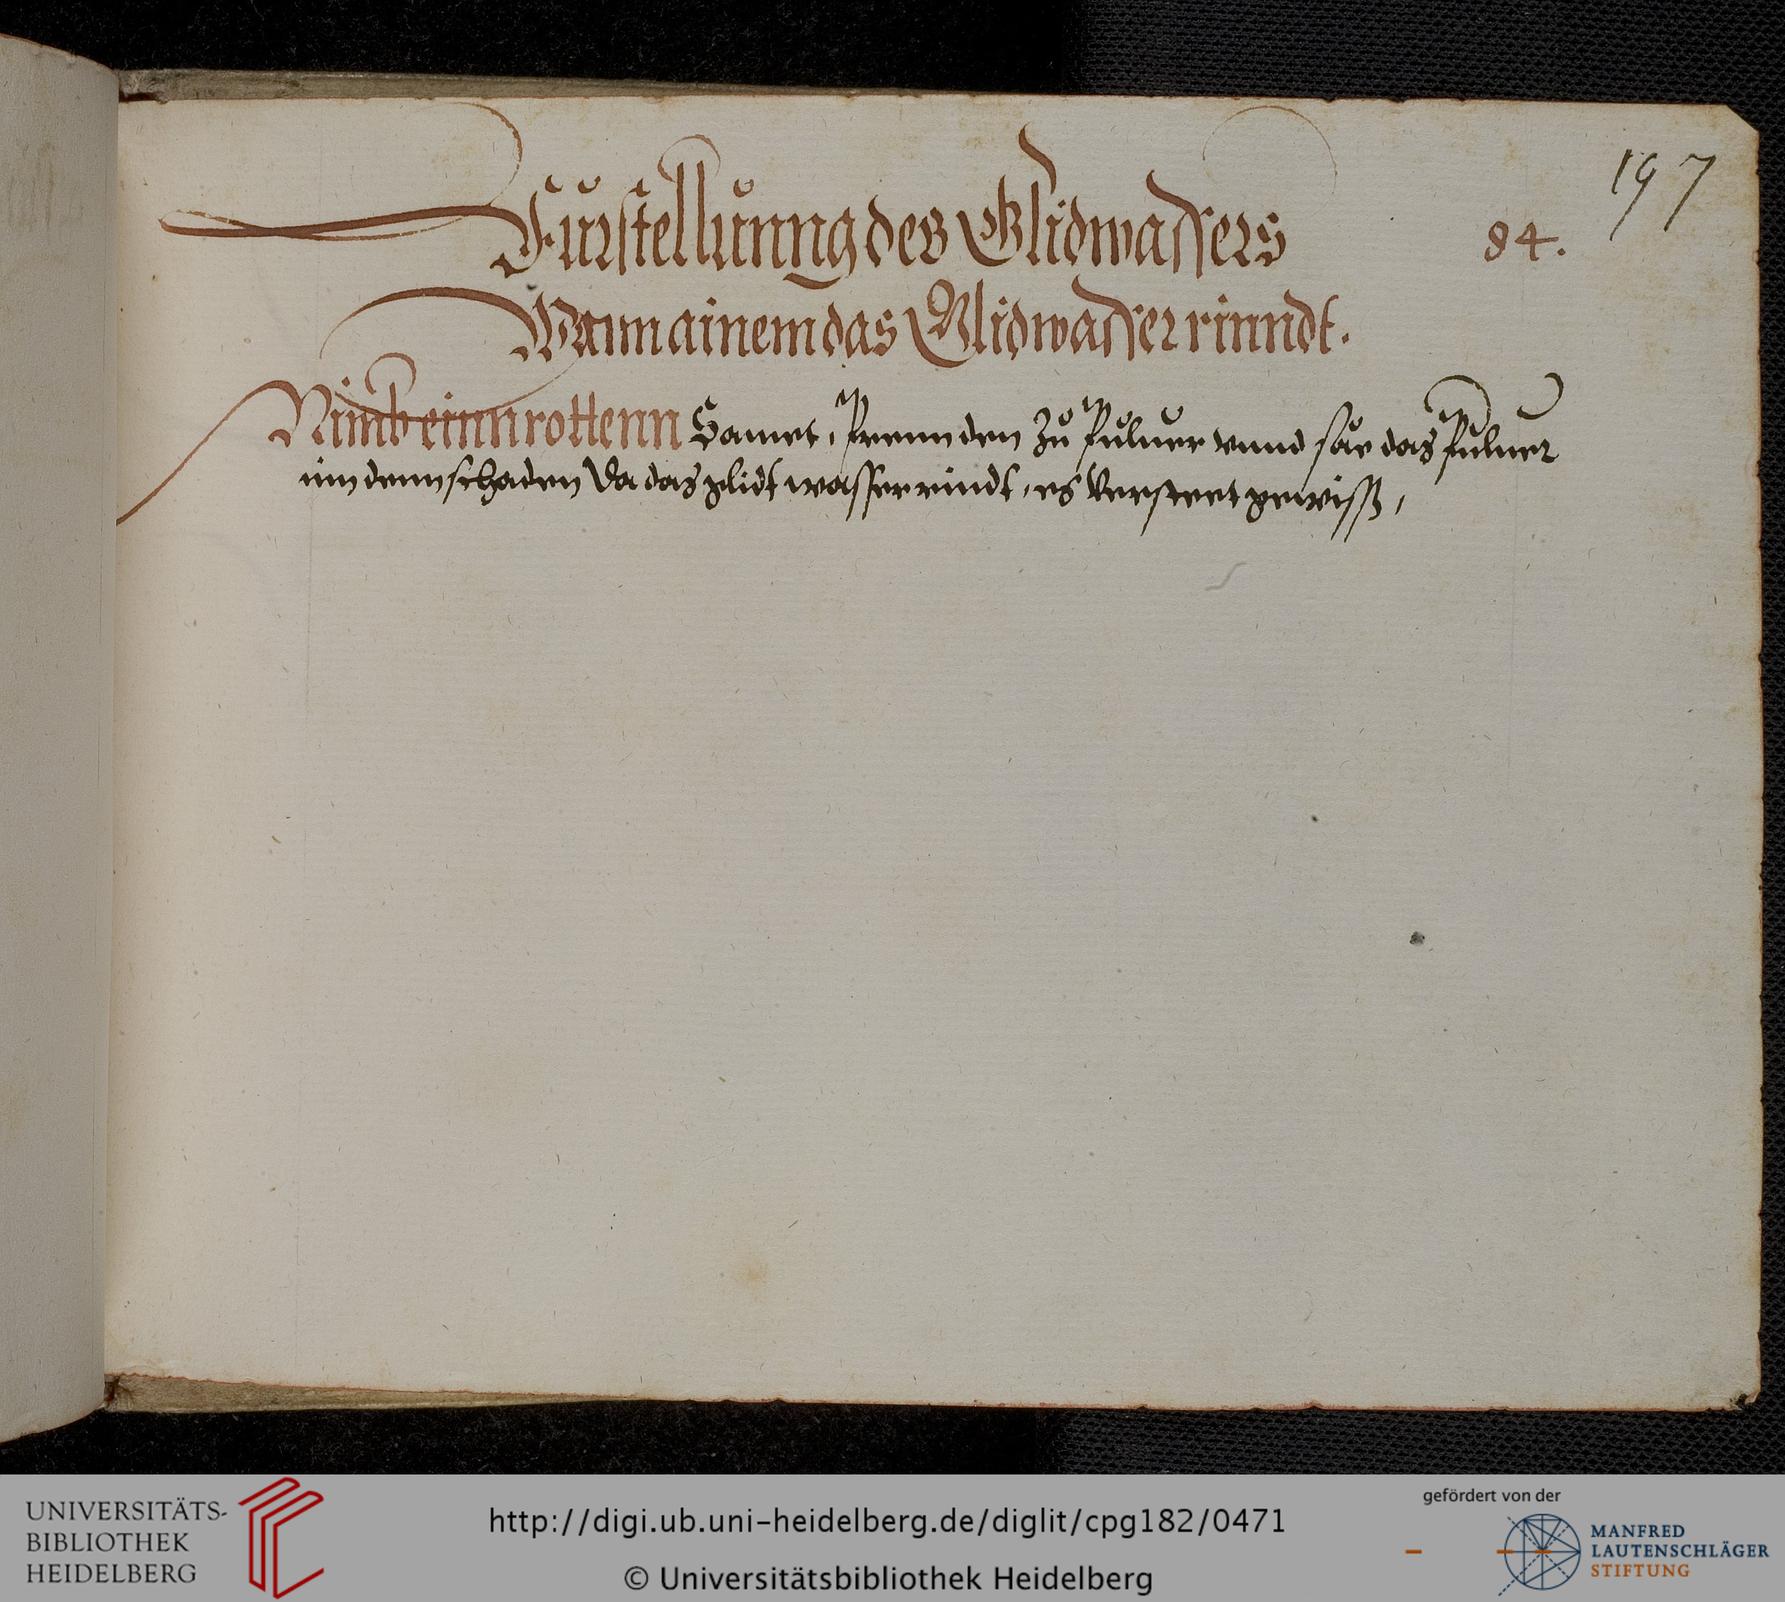 197
Fürstellünng des Glidwassers
84.
Wann ainem das Glidwasser rinndt.
Nimb einn rottenn Samet, Prenn den Zů Puluer vnnd säe das Puluer
inn denn schaden Da das glidt wasser rindt, es Versteet gewisß,
UNIVERSITÄTS-
BIBLIOTHEK
HEIDELBERG
http://digi.ub.uni-heidelberg.de/diglit/cpg182/0471
© Universitätsbibliothek Heidelberg
gefördert von der
MANFRED
LAUTENSCHLÄGER
STIFTUNG